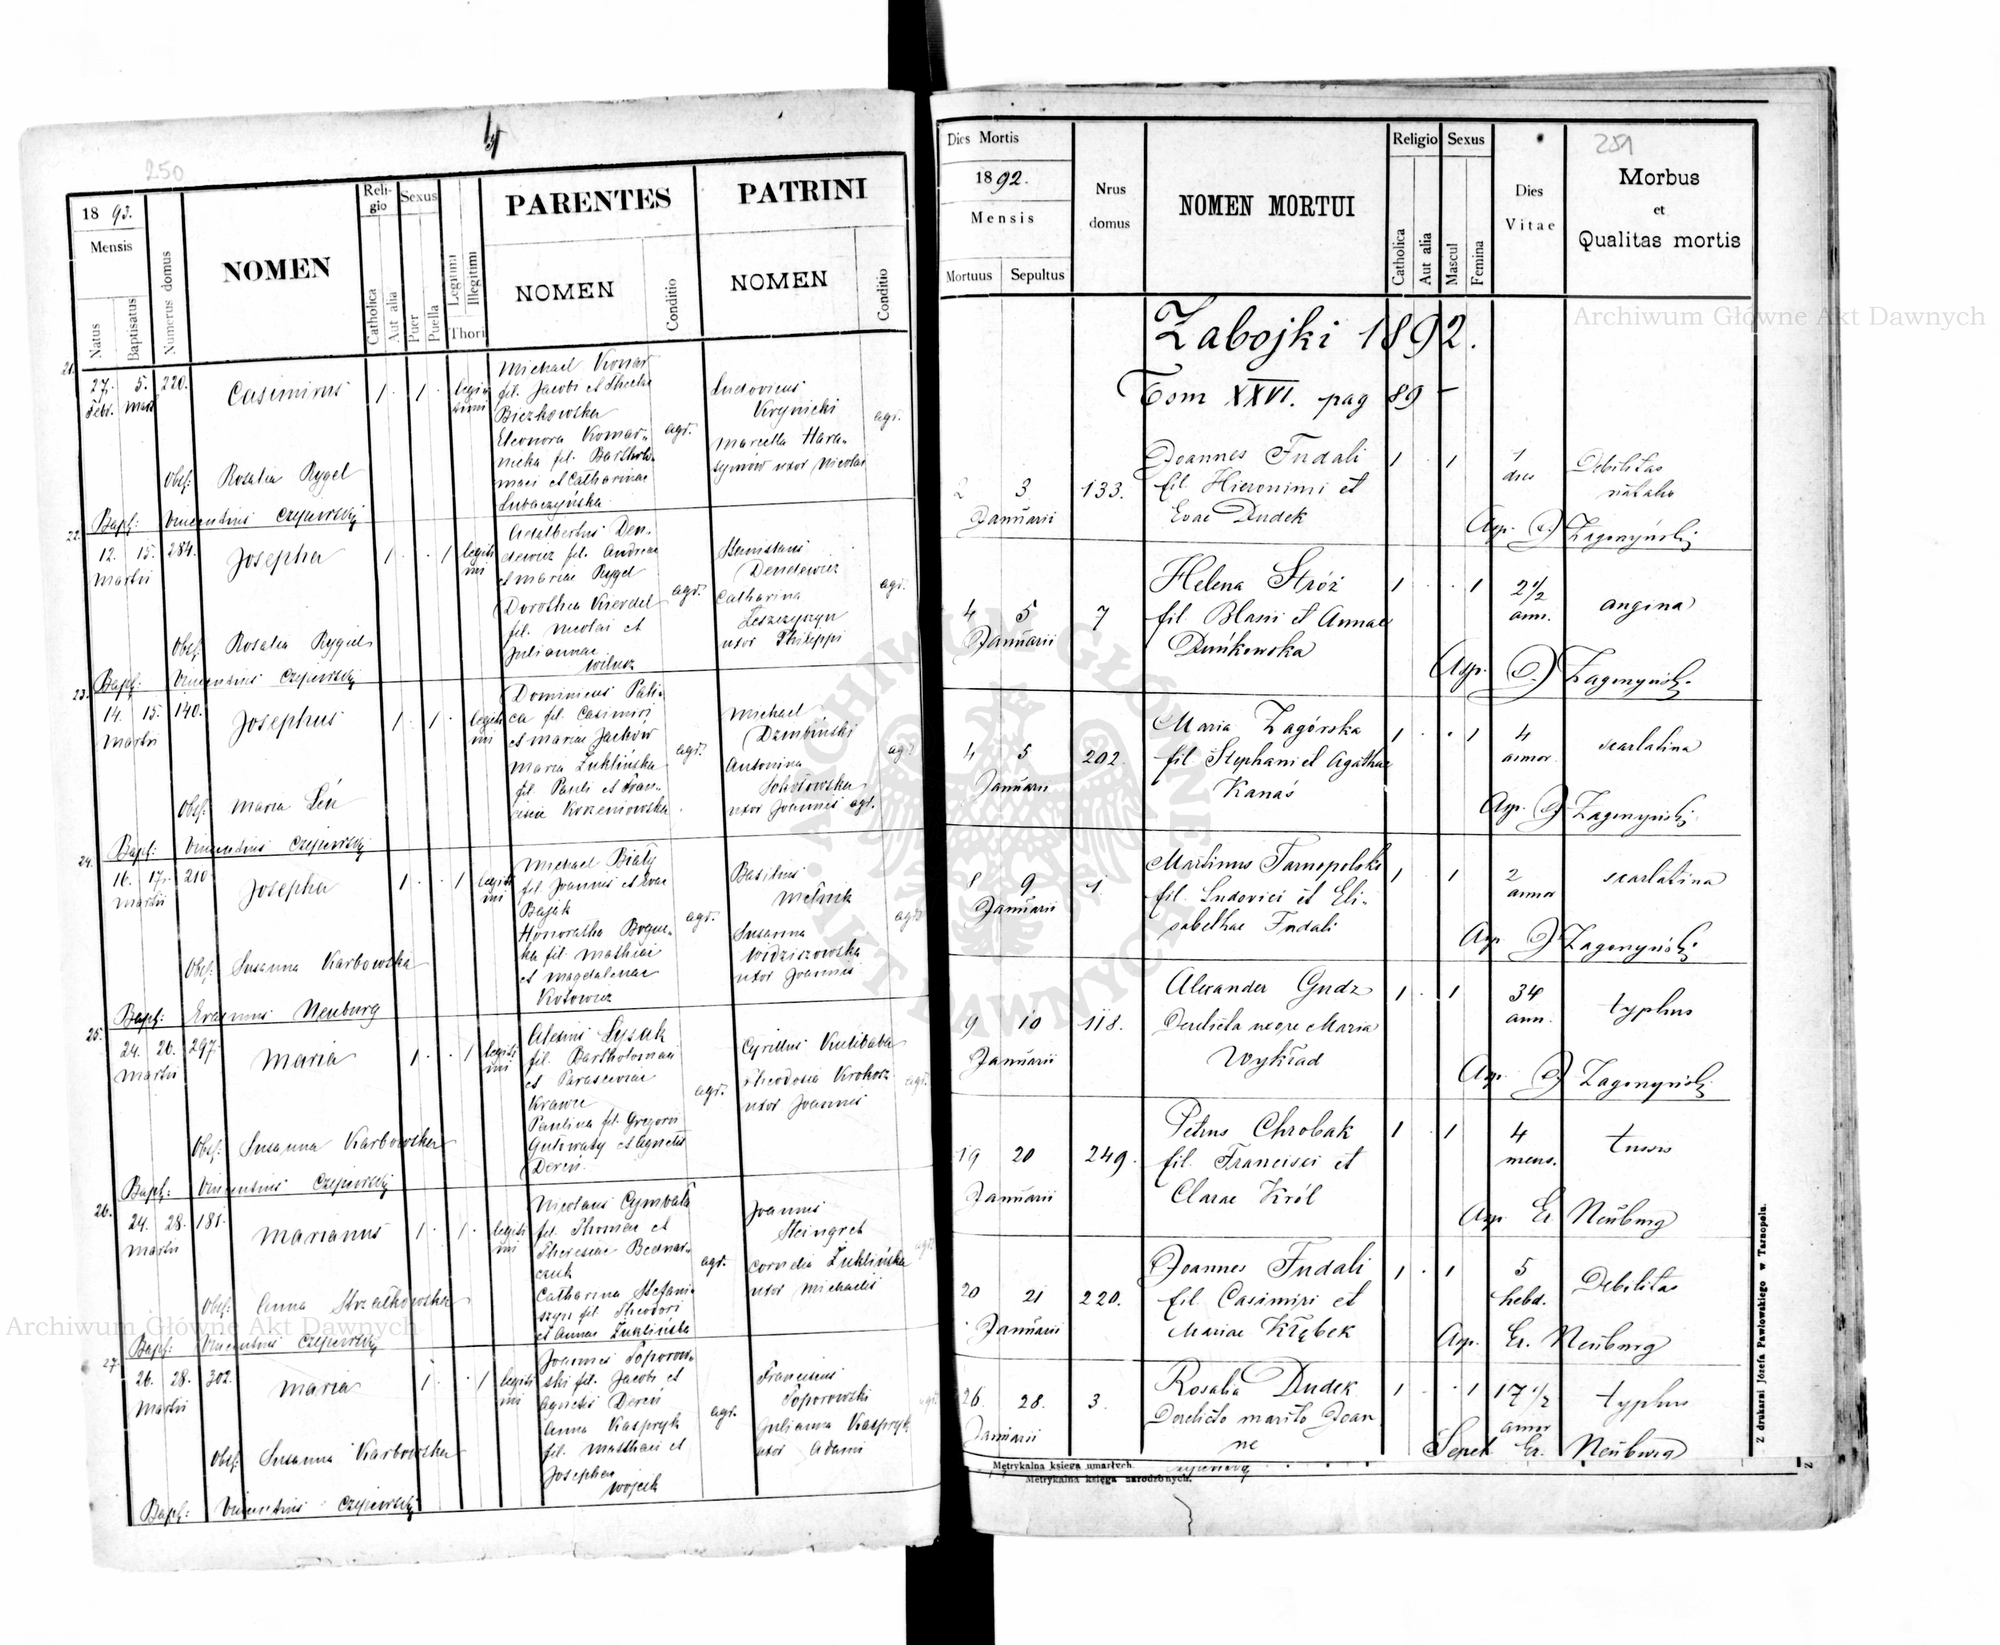 250
18 93.
Mensis
Natus
Baptisatus
Numerus domus
NOMEN
Reli-
gio
Catholica
Aut alia
Sexus
Puer
Puella
Legitimi
Illegitimi
Thori
PARENTES
NOMEN
Conditio
PATRINI
NOMEN
Conditio
21.
27. 5. 220.
Febr. Mart
Casimirus
1 . 1 .
Michael Komar
fil. Jacobi et Theclae
Biczkowska
Eleonora Komar-
nicka fil. Bartholo-
maei et Catharinae
Lubaczyńska
agr.
Ludovicus
Krynicki
Marcella Hara-
symów uxor Nicolai
agr.
Obst: Rosalia Rygel
Bapt: Vincentius Czyżewski
22.
12. 15. 284.
Martii
Josepha
1 . . 1
legiti
mi
Adalbertus Den-
dewicz fil. Andreae
et Mariae Rygel
Dorothea Kierdel
fil. Nicolai et
Juliannae
Wilusz
agr.
Stanislaus
Dendewicz
Catharina
Leszczyszyn
uxor Philippi
agr.
Obst: Rosalia Rygiel
Bapt: Vincentius Czyżewski
23.
14. 15. 140.
Martii
Josephus
1 . 1 .
legiti
mi
Dominicus Pali-
ca fil. Casimiri
et Mariae Jacków
Maria Żuklińska
fil. Pauli et Fran-
cisca Korzeniowska
agr.
Michael
Dzimbiński
Antonina
Sokołowska
uxor Joannis agr.
agr.
Obst: Maria Leń
Bapt: Vincentius Czyżewski
24.
16. 17. 210
Martii
Josepha
1 . . 1
legiti
mi
Michael Biały
fil. Joannis et Evae
Bajak
Honoratha Bogue-
ka fil. Mathiae
et Magdalenae
Kotowicz
agr.
Basilius
Melnik
Susanna
Widziszowska
uxor Joannis
agr.
Obst: Susanna Karbowska
Bapt: Erasmus Neuburg
25.
24. 26. 297.
Martii
Maria
1 . . 1
legiti
mi
Alexius Lysak
fil. Bartholomaei
et Parasceviae
Krawec
Paulina fil. Gregorii
Gutowaty et Agnetis
Dereń
agr.
Cyrillus Kulibaba
Theodosia Krokosz
uxor Joannis
agr.
Obst: Susanna Karbowska
Bapt: Vincentius Czyżewski
26.
24. 28. 181.
Martii
Marianus
1 . 1 .
legiti
mi
Nicolaus Cymbała
fil. Thomae et
Theresiae Bednar-
czuk
Catharina Stefani-
szyn fil. Theodori
et Annae Żuklińska
agr.
Joannes
Steingret
Cornelia Żuklińska
uxor Michaelis
agr.
Obst: Anna Strzałkowska
Bapt: Vincentius Czyżewski
27.
26. 28. 302.
Martii
Maria
1 . . 1
legiti
mi
Joannes Toporow-
ski fil. Jacobi et
Agnetis Dereń
Anna Kaspryk
fil. Matthaei et
Josepha
Wojcik
agr.
Franciscus
Toporowski
Julianna Kaspryk
uxor Adami
Obst: Susanna Karbowska
Bapt: Vincentius Czyżewski
251
Dies Mortis
1892.
Mensis
Mortuus Sepultus
Nrus
domus
NOMEN MORTUI
Religio
Catholica
Aut alia
Sexus
Mascul
Femina
Dies
Vitae
Morbus
et
Qualitas mortis
Zabojki 1892.
Tom XXVI. pag 89 –
2 3 133.
Januarii
Joannes Fudali
fil. Hieronimi et
Evae Dudek
1 . 1
1
dies
Debilitas
natalis
Asp. J. Zagorzyński
4 5 7
Januarii
Helena Stróż
fil. Blasii et Annae
Duńkowska
1 . . 1
2 1/2
ann.
angina
Asp. J. Zagorzyński
4 5 202.
Januarii
Maria Zagórska
fil Stephani et Agathae
Kanas
1 . . 1
4
annor.
scarlatina
Asp. J. Zagorzyński
8 9 1.
Januarii
Martinus Tarnopolski
fil. Ludovici et Eli-
sabethae Fudali
1 . 1
2
annor
scarlatina
Asp J. Zagorzyński
9 10 118.
Januarii
Alexander Gudz
Derelicta uxore Maria
Wykład
1 . 1
34
ann.
typhus
Asp. J. Zagorzyński
19 20 249.
Januarii
Petrus Chrobak
fil. Francisci et
Clarae Król
1 . 1
4
mens.
tussis
Asp Er Neuburg
20 21 220.
Januarii
Joannes Fudali
fil. Casimiri et
Mariae Kłębek
1 . 1
5
hebd.
Debilitas
Asp. Er. Neuburg
26. 28. 3.
Januarii
Rosalia Dudek
Derelicto marito Joan
ne
1 . . 1
17 1/2
annor
typhus
Sepel Er. Neuburg
Metrykalna księga umarłych.
Metrykalna księga narodzonych.
Z drukarni Józefa Pawłowskiego w Tarnopolu.
2
Archiwum Główne Akt Dawnych
Archiwum Główne Akt Dawnych
ARCHIWUM GŁÓWNE AKT DAWNYCH